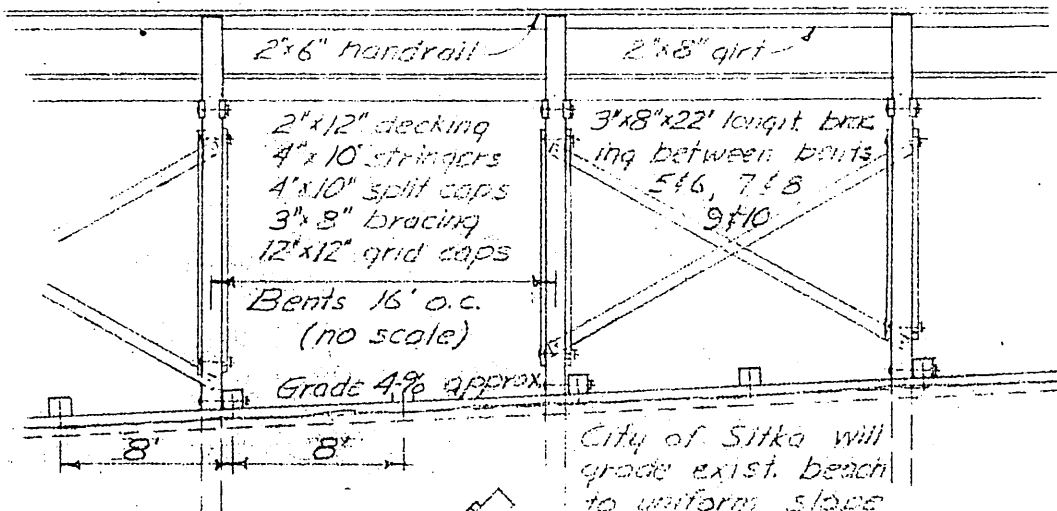 2"x6" handrail
2"x8" girt
2"x12" decking
4"x10" stringers
4"x10" split caps
3"x8" bracing
12"x12" grid caps
3"x8"x22' longit. brac
ing between bents
5&6, 7&8
9&10
Bents 16' o.c.
(no scale)
Grade 4% approx.
8'
8'
City of Sitka will
grade exist. beach
to uniform slope